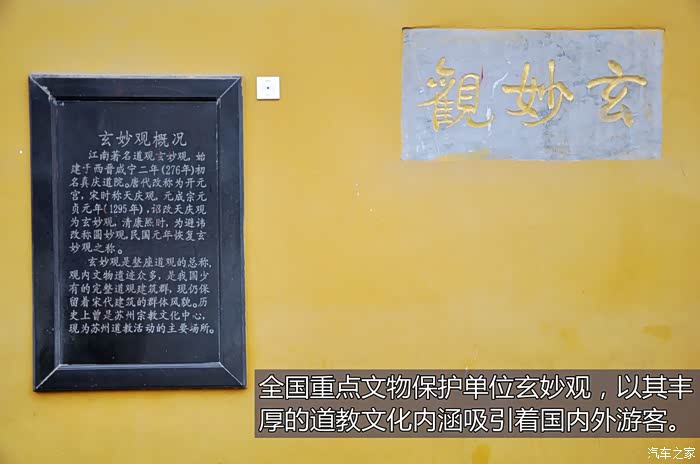 觀妙玄
玄妙观概况
江南著名道观玄妙观，始
建于西晋咸宁二年(276年)初
名真庆道院。唐代改称为开元
宫，宋时称天庆观，元成宗元
贞元年(1295年)，诏改天庆观
为玄妙观，清康熙时，为避讳
改称圆妙观，民国元年恢复玄
妙观之称。
玄妙观是整座道观的总称，
观内文物遗迹众多，是我国少
有的完整道观建筑群，现仍保
留着宋代建筑的群体风貌。历
史上曾是苏州宗教文化中心，
现为苏州道教活动的主要场所。
全国重点文物保护单位玄妙观，以其丰
厚的道教文化内涵吸引着国内外游客。
汽车之家